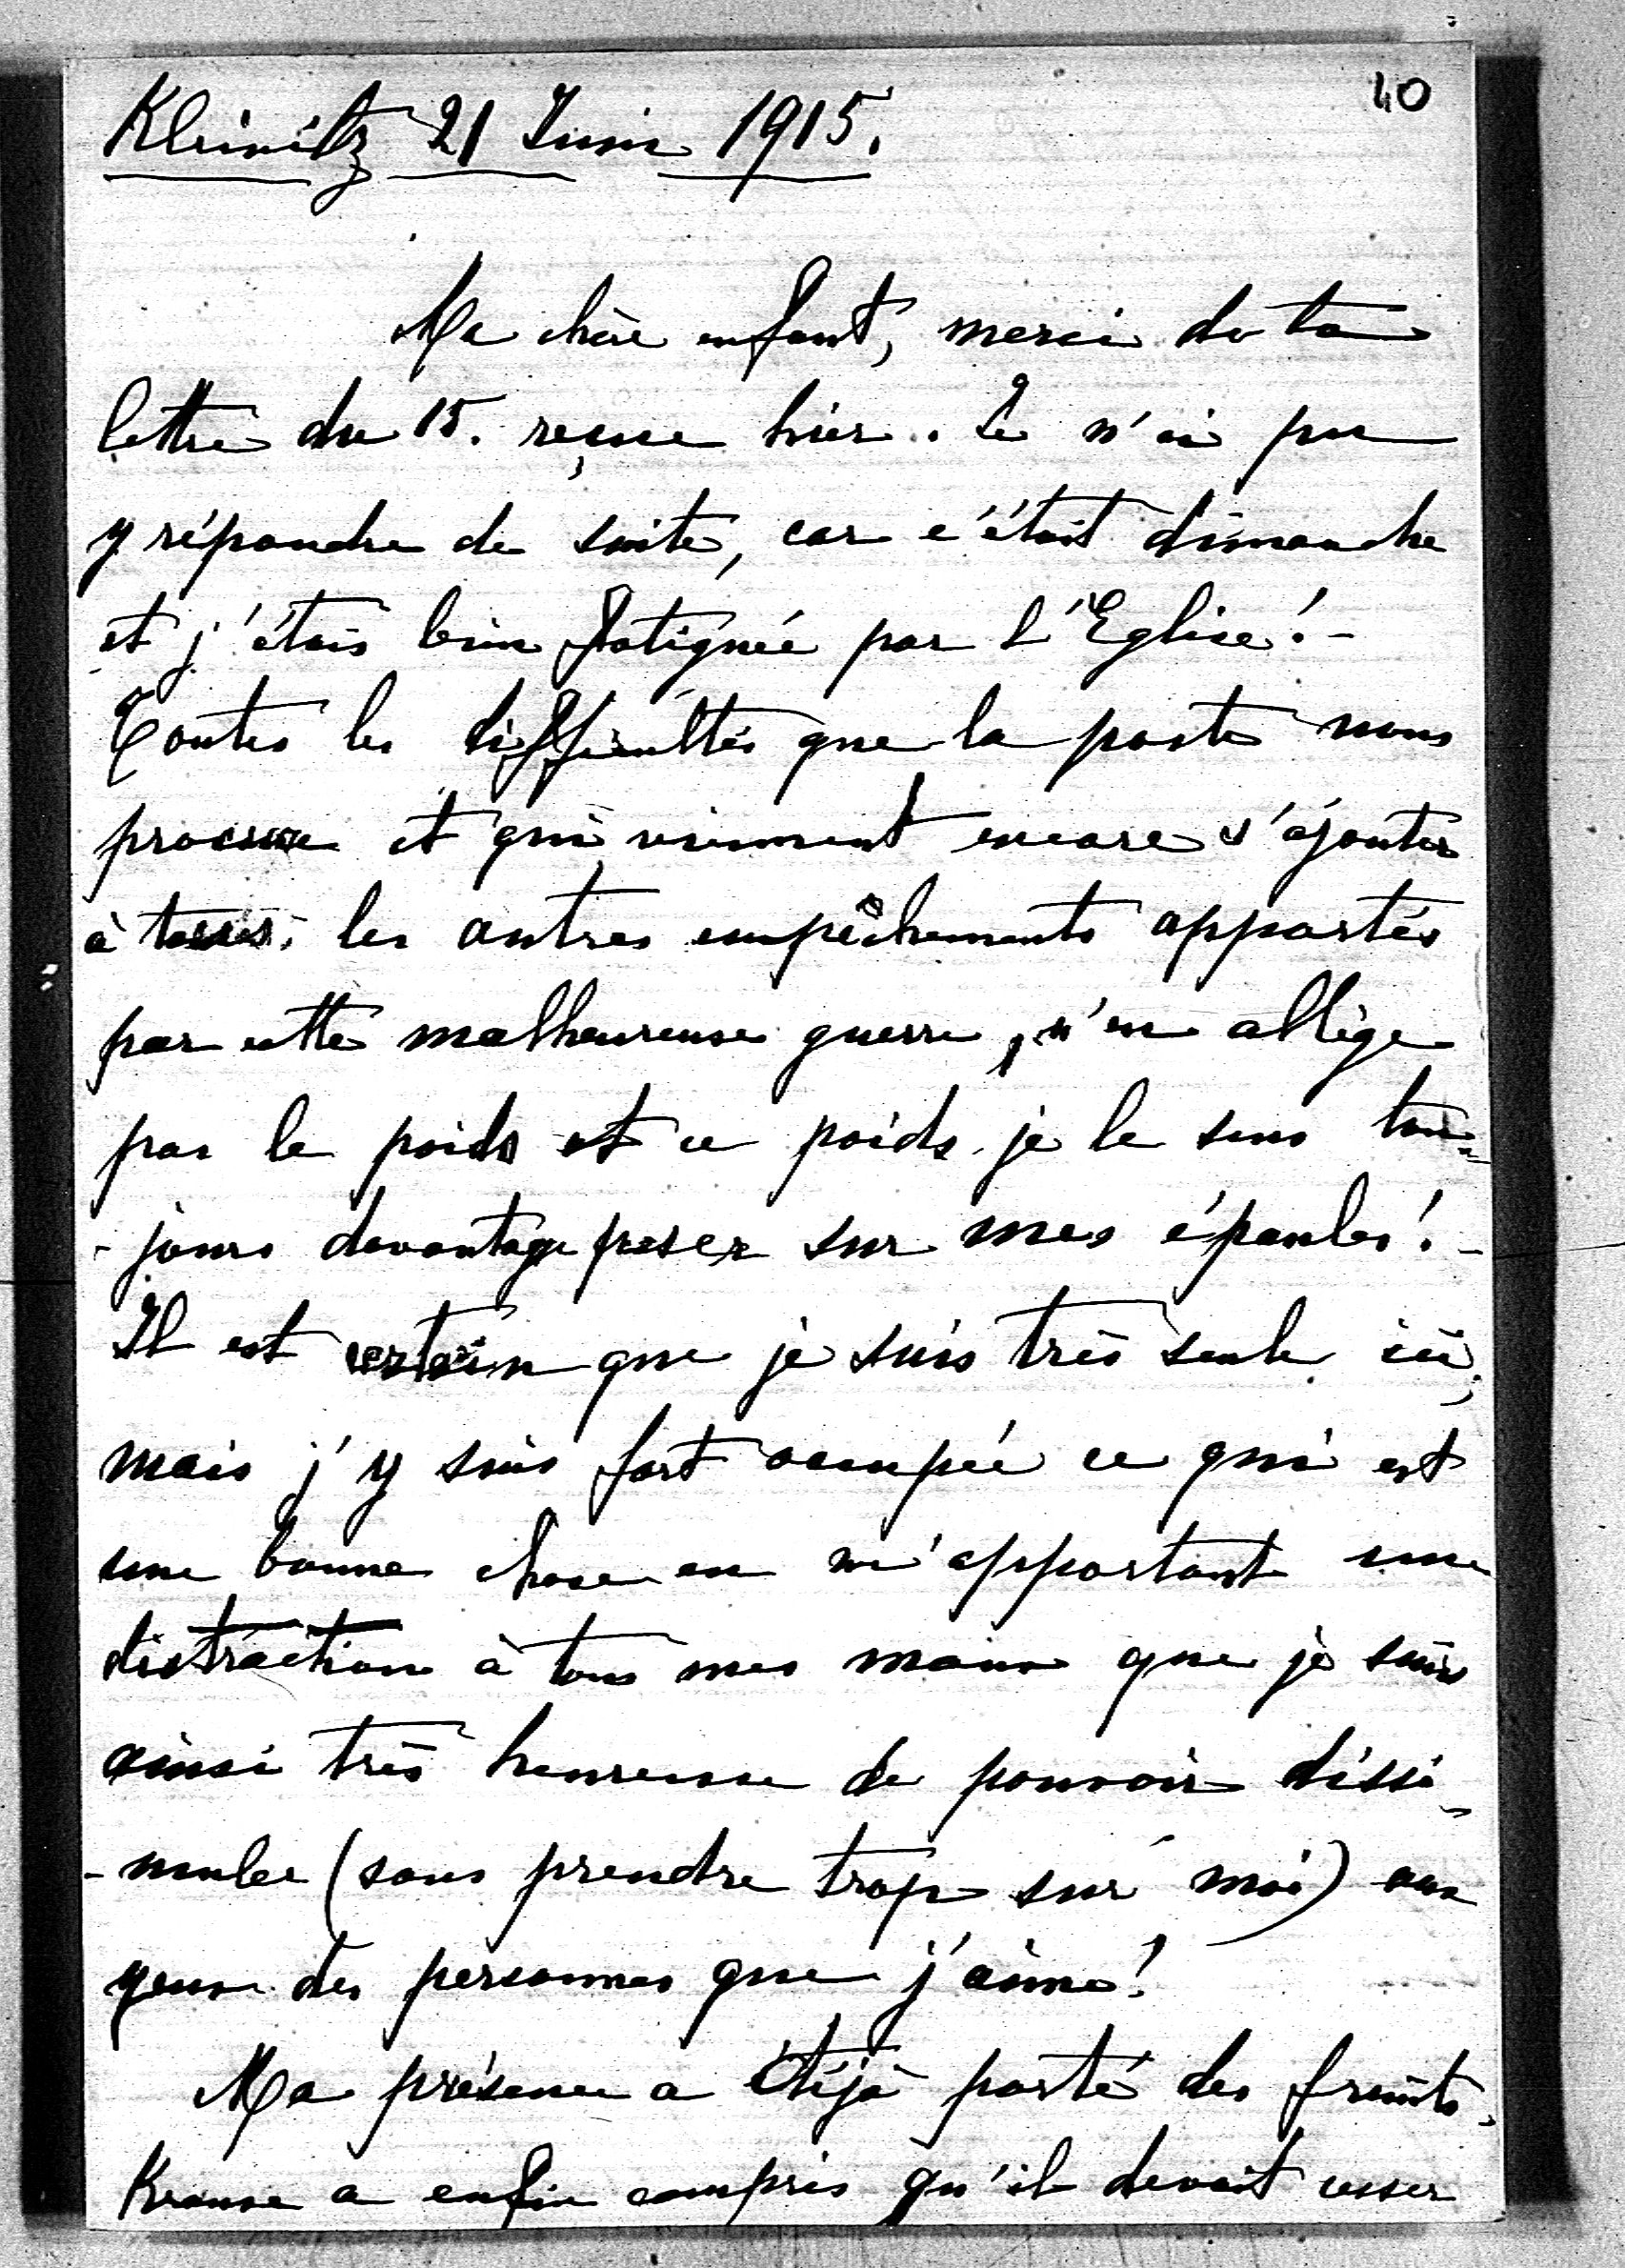 40
Kleinitz 21 Juin 1915.
Ma chère enfant, merci de ta
lettre du 15. reçue hier. Je n'ai pu
y répondre de suite, car c'était dimanche
et j'étais bien fatiguée par l'Eglise! -
Toutes les difficultés que la poste nous
procure et qui viennent encore s'ajouter
à tous les autres empêchements apportés
par cette malheureuse guerre, n'en allège
pas le poids et ce poids je le sens tou-
-jours davantage peser sur mes épaules! -
Il est certain que je suis très seule ici,
mais j'y suis fort occupée ce qui est
une bonne chose en m'apportant une
distraction à tous mes maux que je suis
ainsi très heureuse de pouvoir dissi-
-muler (sans prendre trop sur moi) aux
yeux des personnes que j'aime!
Ma présence a déjà porté des fruits.
Krause a enfin compris qu'il devait cesser